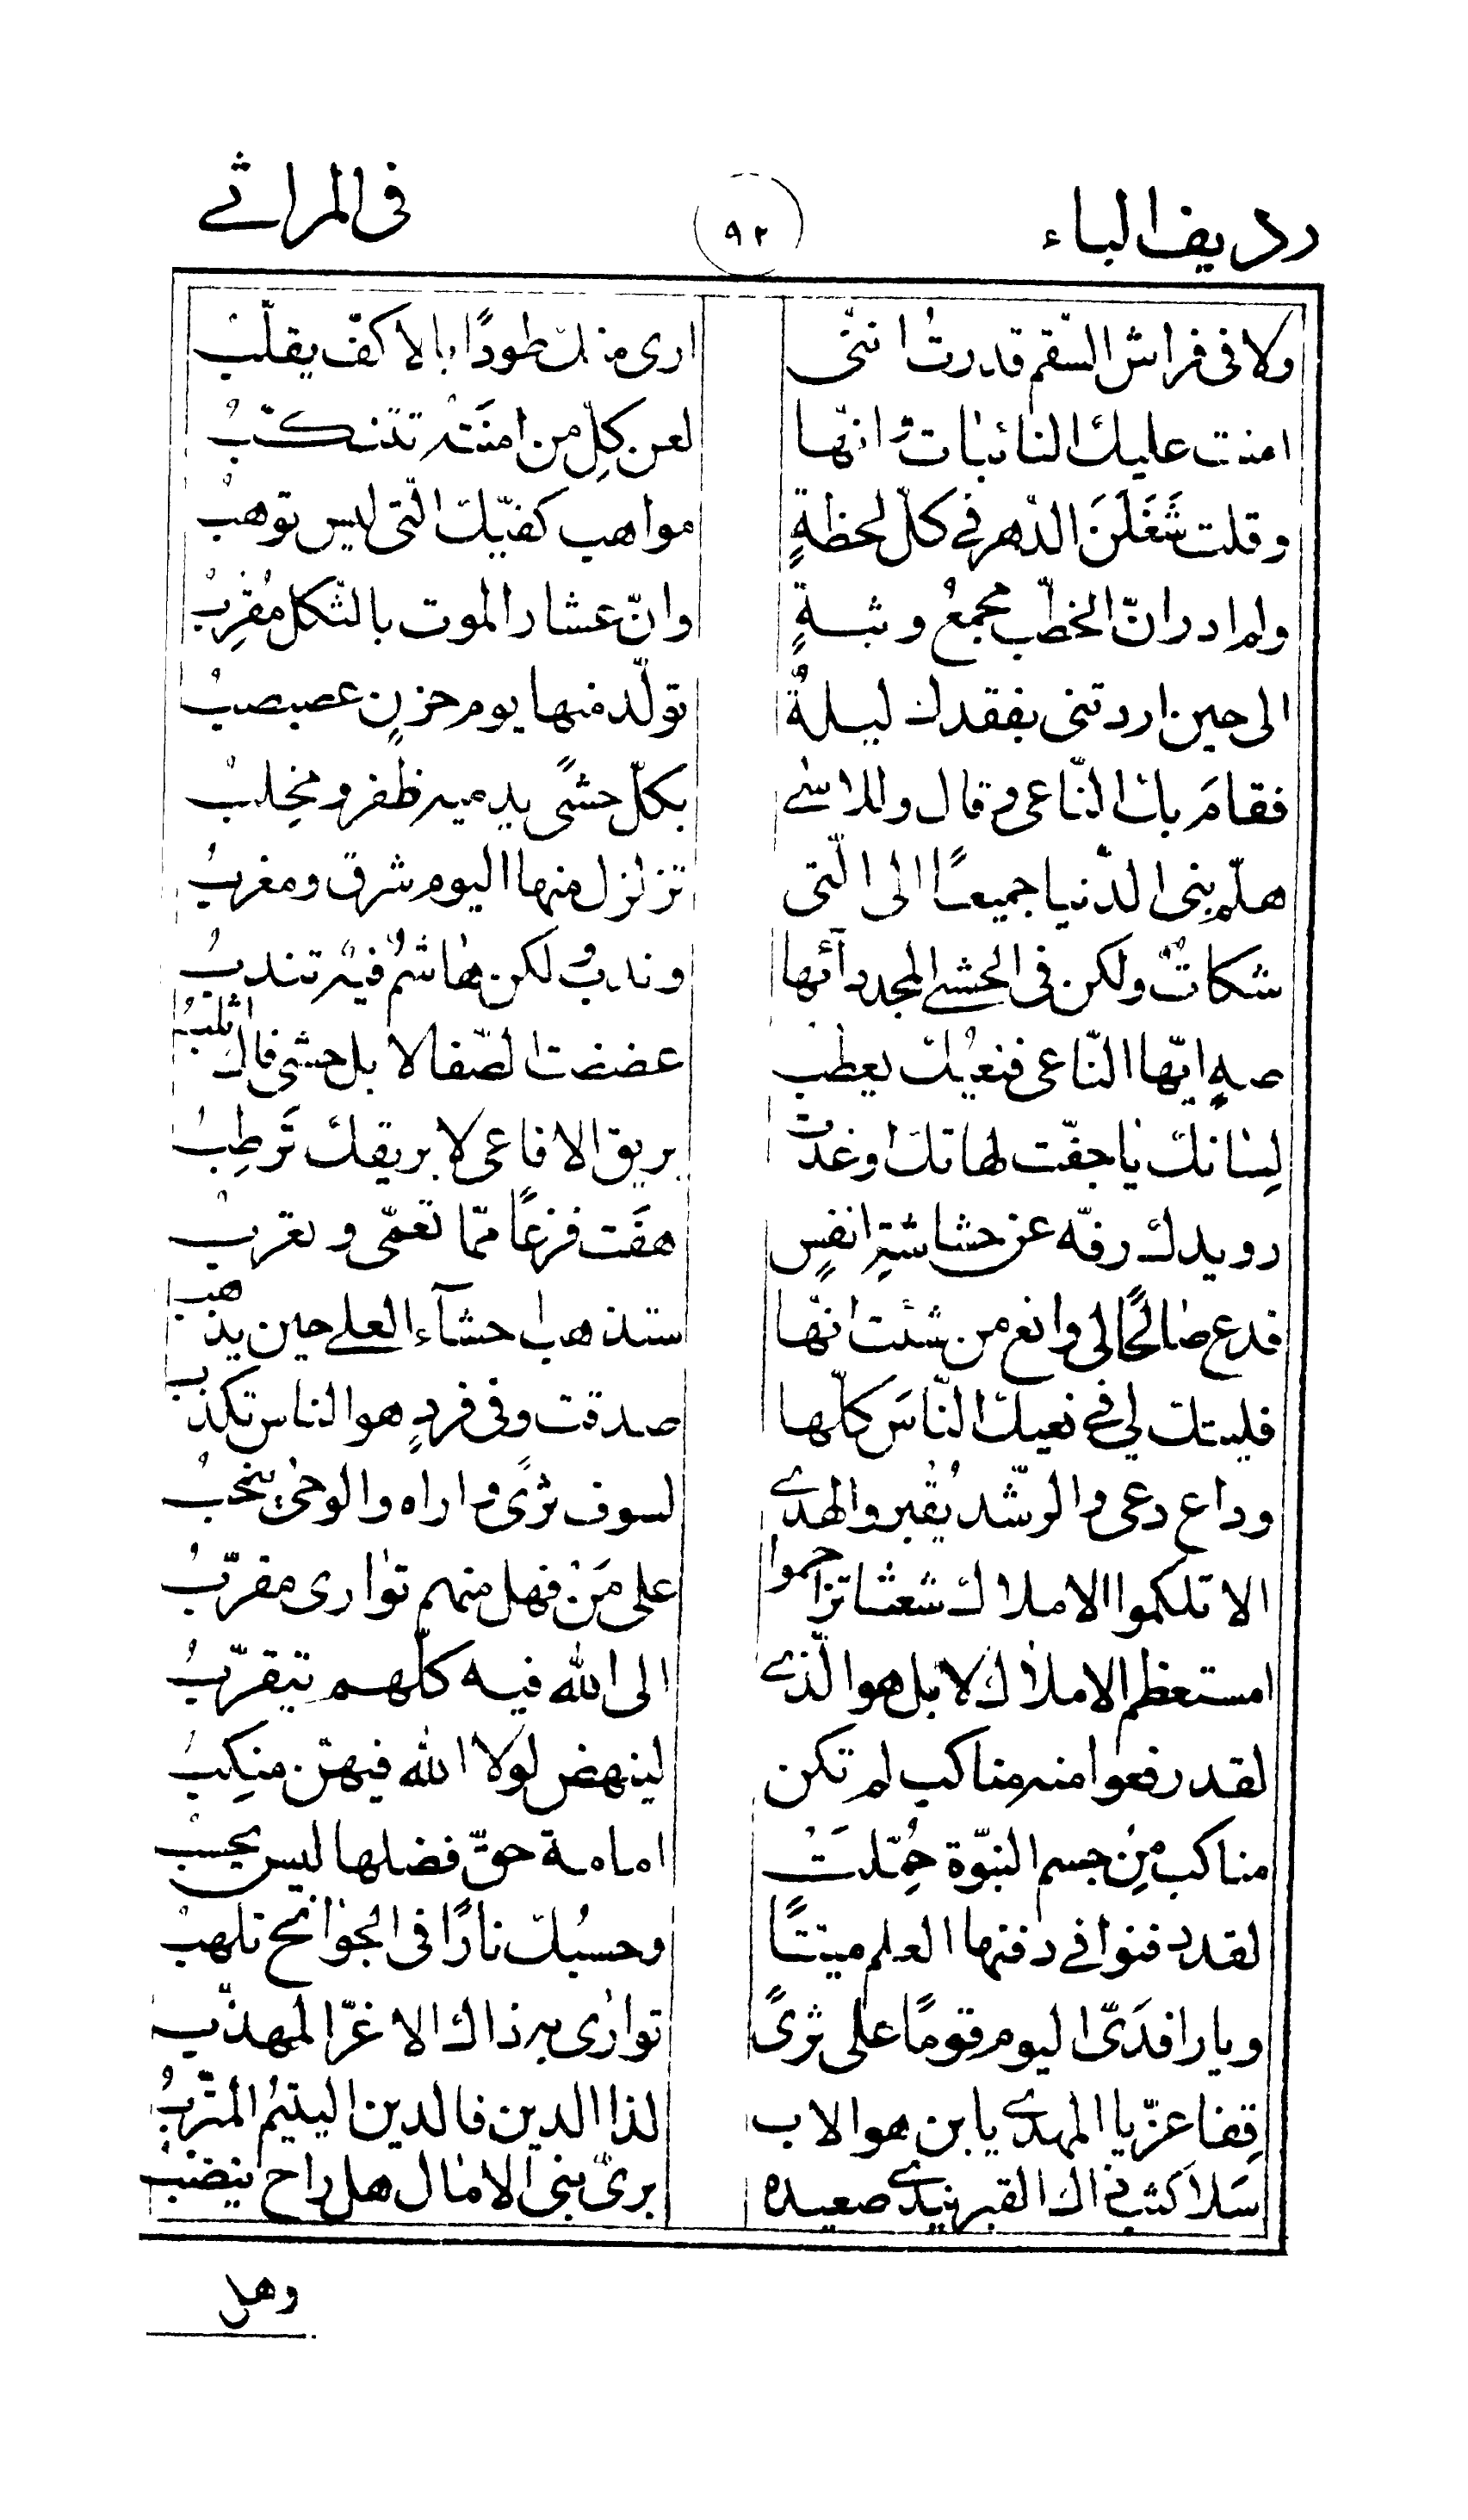 ردیف الباء ٩٢ فی المراثے
ولا فی فراش السّقم قدرتُ انّنی اری منك طودًا بالاکفّ یقلّبُ
امنت علیك النائبات وانّها لعن کلِّ من امنتَهُ تتنکّبُ
وقلت شَغَلَنَ الدّهر فی کلّ لحظةٍ مواهب کفیّك الّتی لیس توهبُ
ولم ادر انّ الخطب مجمعُ وثبةٍ وانّ عشار الموت بالثکل مُقرِبُ
الی حین اردتنی بفقدك لیلةٌ تولّد منها یوم حزنٍ عصبصبُ
فقامَ بك النّاعی وقال وللاسٰی بکلّ حشًی یدمیه ظفر ومخِلبُ
هلمّ بنی الدّنیا جمیعًا الی الّتی تزلزل منها الیوم شرق ومغربُ
شکاتٌ ولکن فی الحشے المجد دآئها وندبٌ لکن هاشمٌ فیه تندبُ
صهٍ ایّها النّاعی فنعیُك یعطبُ عضضت الصّفا لا بل حشی فاك اثلبُ
لِسانك یا جفّت لهاتك اوغدت بریق الافاعی لا بریقك تَرطِبُ
رویدك رفّه عن حشاشةِ انفسٍ هفَت فزعًا ممّا تعمّی وتعربُ
فدع صٰالحًا لی وانع من شئت انّها ستذهب احشآء العلے حین یذهب
فلیتك لی فے نعیك النّاسَ کلّها صدقت وفی فردٍ هو الناس تکذب
وداع دعی والرشّدُ یُقبر والهدے لسوف ثرًی واراه والوحیُ ینحبُ
الا تلکموا الاملاك شعثا تزاحموا علی مَنْ فهل منهم تواری مقرّبُ
امستعظم الاملاك لا بل هو الّذے الی الله فیه کلّهم یتقرّبُ
لقد رفعوا منه مناکب لم تکن لینهض لولا الله فیهنّ منکِبُ
مناکب مِن جسم النبّوة حُمّلَتْ امامة حقّ فضلها لیس یحسبُ
لقد دفنوا فے دفنها العلم میتًّا وحسبُك نارًا فی الجوٰانح تلهبُ
ویا رافدَیّ الیوم قومًا علی ثریً توارٰی به ذاك الاغرّ المهذّب
قِفا عزّیا المهدے یا ابن هو الاب لذا الدین فالدین الیتیم المترّبُ
سَلا کثب ذاك القبر یندے صعیده بریّ بنی الاٰمال هل راح ینضبُ
وهل